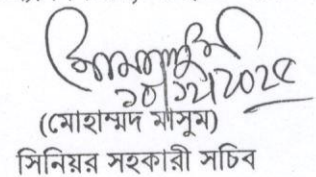 ১০/১২/2024
(মোহাম্মদ মাসুম)
সিনিয়র সহকারী সচিব